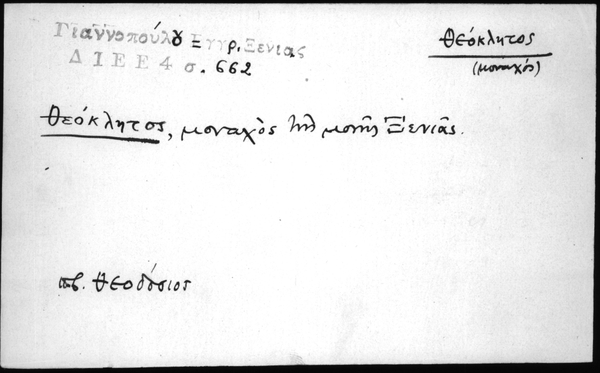 Γιαννοπούλου Ξυγγρ. Ξενιας
ΔΙΕΕ 4 σ. 662
Θεόκλητος
(μοναχός)
Θεόκλητος, μοναχὸς τῆς μονῆς Ξενιᾶς.
πβ. Θεοδόσιος